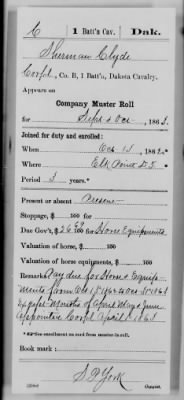 C | 1 Batt'n Cav. | Dak.
Sherman Clyde
Corp'l, Co. B, 1 Batt'n, Dakota Cavalry.
Appears on
Company Muster Roll
for Sept & Oct, 1863.
Joined for duty and enrolled:
When 186
Where Elk Point D.T.
Period 3 years.*
Present or absent Present
Stoppage, $ 100 for
Due Gov't, $ 100 for Horse Equipments
Valuation of horse, $ 100
Valuation of horse equipments, $ 100
Remarks: Pay due for Horse & Equip-
ments from
Months of April May & June
Appointed Corp'l April
*See enrollment on card from muster-in roll.
Book mark:
Copyist.